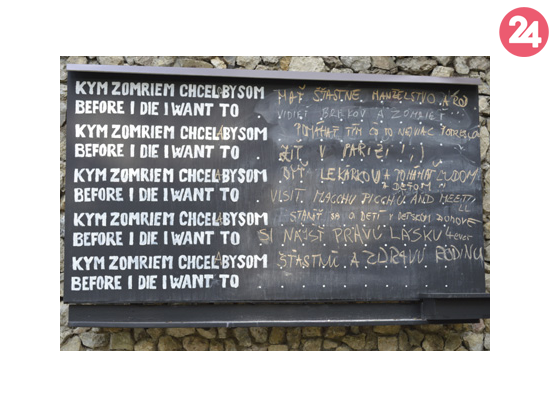 24
KYM ZOMRIEM CHCEL/A BY SOM MAŤ ŠŤASTNÉ MANŽELSTVO A
BEFORE I DIE I WANT TO VIDIEŤ A ZOMRIEŤ
KYM ZOMRIEM CHCEL/A BY SOM POMÁHAŤ TÝM ČO TO NAJVIAC
BEFORE I DIE I WANT TO ŽIŤ V PARÍŽI !;)
KYM ZOMRIEM CHCEL/A BY SOM BYŤ LEKÁRKOU + POMÁHAŤ ĽUĎOM
+ DEŤOM
BEFORE I DIE I WANT TO VISIT MACCHU PICCHU AND MEET
KYM ZOMRIEM CHCEL/A BY SOM STARAŤ SA O DETI V DETSKOM DOMOVE
BEFORE I DIE I WANT TO SI NÁJSŤ PRAVÚ LÁSKU 4ever
KYM ZOMRIEM CHCEL/A BY SOM ŠŤASTNÚ A ZDRAVÚ RODINU
BEFORE I DIE I WANT TO